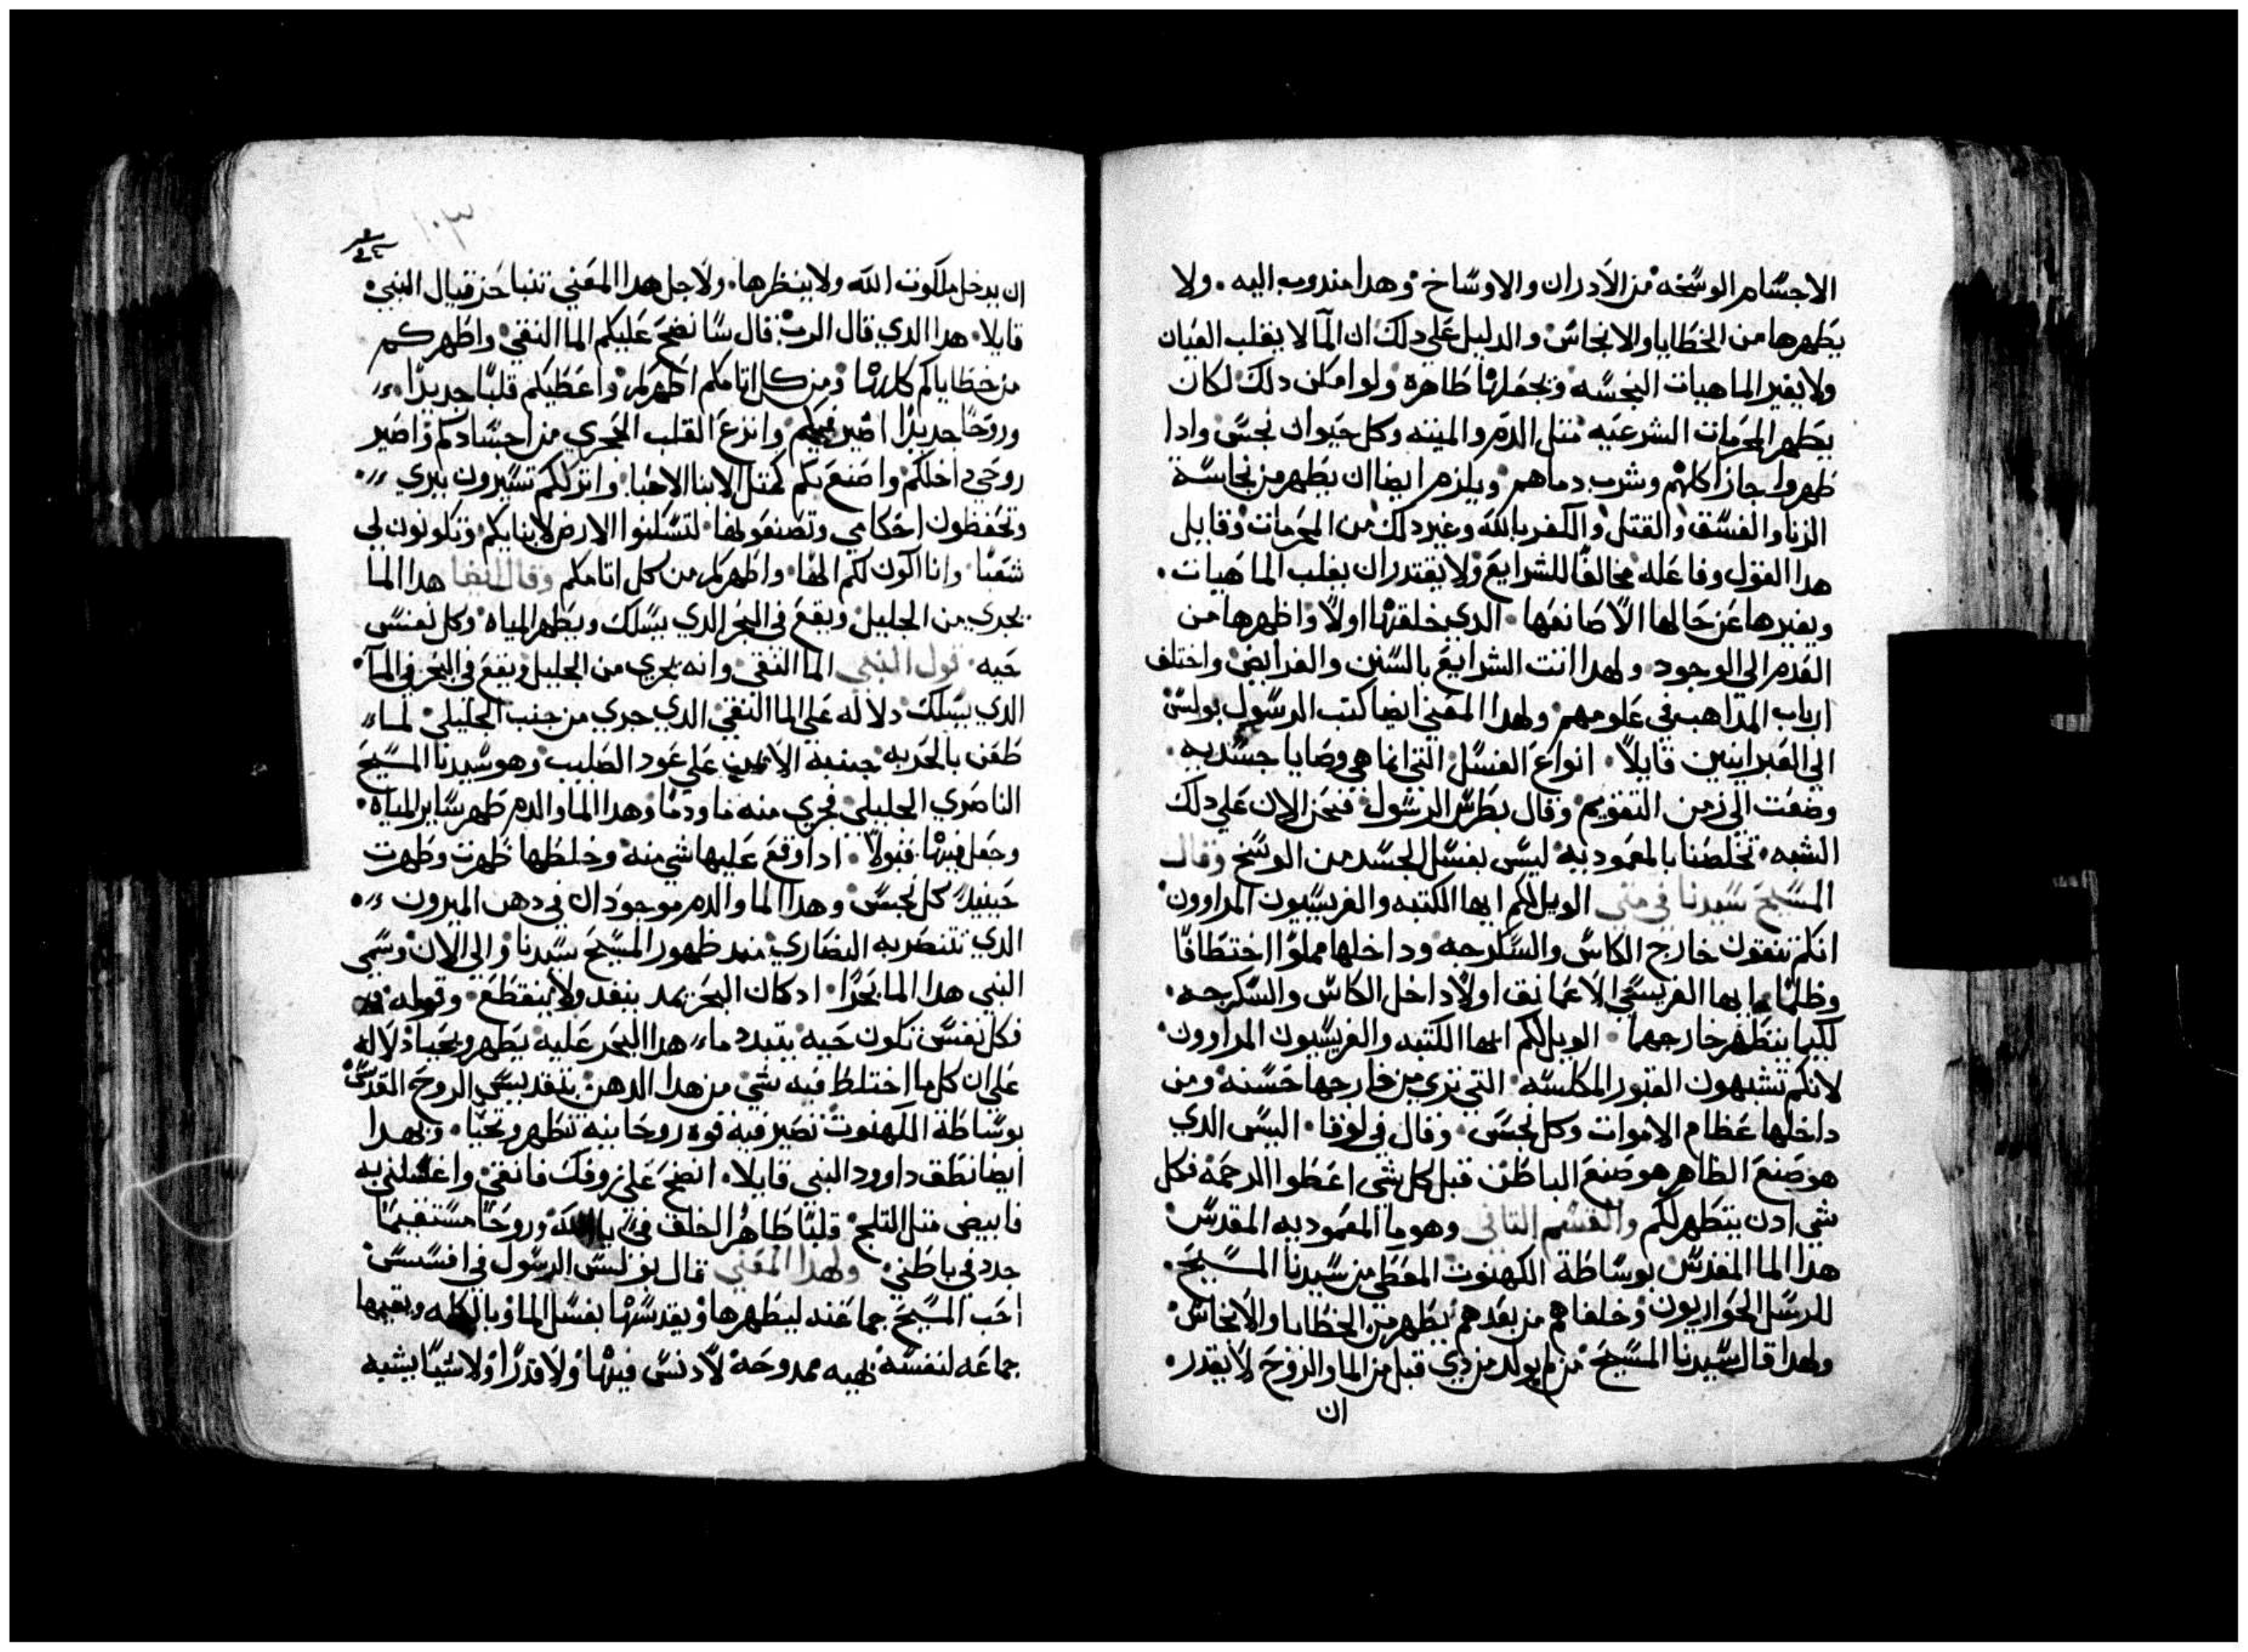 الاجسام الوسخه من الادران والاوساخ وهدا مندوب اليه . ولا
يطهرها من الخطايا والانجاس والدليل على دلك ان المآ لا يقلب العيان
ولا يغير الماهيات النجسه ويجعلها طاهرة ولو امكن دلك لكان
يطهر المحرمات الشرعيه متل الدم والميته وكل حيوان نجس وادا
طهروا جاز اكلهم وشرب دماهم ويلزم ايضا ان يطهر من نجاسة
الزنا والفسق والقتل والكفر بالله وغير دلك من المحرمات وقايل
هدا القول وفاعله مخالفًا للشرايع ولا يقتدر ان يقلب الماهيات .
ويغيرها عن حالها الا صانعها . الدي خلقها اولًا واظهرها من
العدم الي الوجود . ولهدا اتت الشرايع بالسنن والفرايض واختلف
ارباب المداهب في علومهم ولهدا المعني ايضا كتب الرسول بولس
الي العبرانيين قايلًا . انواع الغسل التي انما هي وصايا جسديه .
وضعت الي زمن التقويم وقال بطرس الرسول فنحن الان علي دلك
الشبه . تخلصنا بالمعموديه ليس بغسل الجسد من الوسخ وقال
المسيح سيدنا في متي الويل لكم ايها الكتبه والفريسيون المراوون
انكم تنقون خارج الكاس والسكرجه وداخلها مملوا اختطافًا
وظلمًا ايها الفريسي الاعما نق اولًا داخل الكاس والسكرجه .
لكيما يتطهر خارجهما . الويل لكم ايها الكتبه والفريسيون المراوون
لانكم تشبهون القبور المكلسه التي تري من خارجها حسنه ومن
داخلها عظام الاموات وكل نجس . وقال في لوقا . اليس الدي
هو صنع الظاهر هو صنع الباطن قبل كل شي اعطوا الرحمة فكل
شي ادن يتطهر لكم والقسم التاني وهو ما المعموديه المقدس
هدا الما المقدس بوساطة الكهنوت المعطي من سيدنا المسيح .
للرسل الحواريون وخلفاهم من بعدهم يطهر من الخطايا والانجاس
ولهدا قال سيدنا المسيح من لم يولد من دي قبل من الما والروح لا يقدر .
ان
١٠٣
ان يدخل ملكوت الله ولا ينظرها . ولاجل هدا المعني تنبا حزقيال النبي
قايلا . هدا الدي قال الرب . قال سانضح عليكم الما النقي واطهركم
من خطاياكم كلها ومن كل اتامكم اطهركم واعطيكم قلبًا جديدًا .
وروحًا جديدًا اصير فيكم وانزع القلب الحجري من اجسادكم واصير
روحي داخلكم واصنع بكم كمتل الابنا الاحبا . واترككم تسيرون ببري
وتحفظون احكامي وتصنعونها . لتسكنوا الارض لابنايكم وتكونون لي
شعبًا وانا اكون لكم الها . واطهركم من كل اتامكم وقال ايضا هدا الما
يجري من الجليل ويقع في البحر الدي يسلك ويطهر المياه وكل نفس
حيه . قول النبي الما النقي وانه يجري من الجليل ويقع في البحر في المآ .
الدي يسلك دلاله علي الما النقي الدي جري من جنب الجليلي لما
طعن بالحربه جنبه الايمن علي عود الصليب وهو سيدنا المسيح
الناصري الجليلي فجري منه ما ودما وهدا الما والدم طهر ساير المياه .
وجعل فيها قبولًا . ادا وقع عليها شي منه وخلطها طهرت وطهرت
حينيد كل نجس وهدا الما والدم موجودان في دهن الميرون .
الدي تتنصر به النصاري مند ظهور المسيح سيدنا والي الان وسمي
النبي هدا الما بحرًا . ادكان البحر يمد ينفد ولا ينقطع . وقوله
فكل نفس تكون حيه يتبدد ما هدا البحر عليه يطهر ويحيا دلاله
علي ان كلما اختلط فيه شي من هدا الدهن بتقديس الروح القدس
بوساطة الكهنوت تصير فيه قوه روحانيه تطهر وتحيي . وبهدا
ايضا نطق داوود النبي قايلا . انضح علي زوفك فانقي واغسلني به
فابيض متل التلج قلبًا طاهرًا اخلق في يا الله وروحًا مستقيمًا
جدد في باطني ولهدا المعني قال بولس الرسول في افسس
احب المسيح جماعته ليطهرها ويقدسها بغسل الما وبالكلمه ويقيمها
جماعه لنفسه بهيه ممدوحه لا دنس فيها ولا قدرًا ولا شيا يشبه